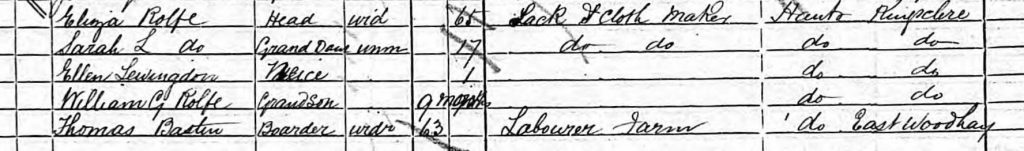 Eliza Rolfe Head wid 65 Sack & Cloth Maker Hants Kingsclere
Sarah L do Grand Daur unm 17 do do do do
Ellen Lewingdon Neice 1 do do
William G Rolfe Grandson 9 months do do
Thomas Basten Boarder wdr 63 Labourer Farm do East Woodhay